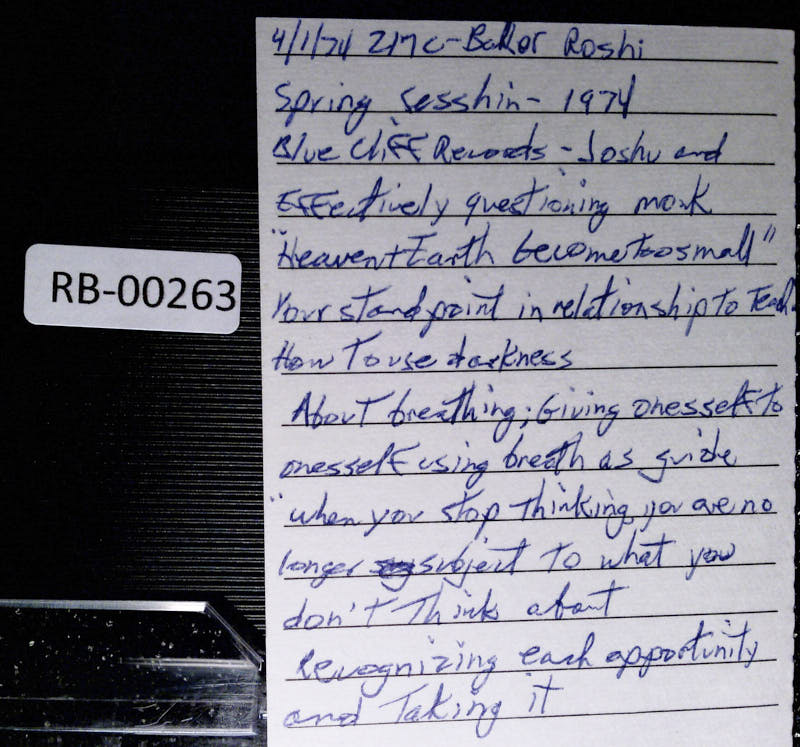 4/1/74 ZMC-Baker Roshi
Spring sesshin- 1974
Blue Cliff Records - Joshu and
Effectively questioning monk
"Heaven+Earth become too small"
RB-00263
Your standpoint in relationship to Teach
How To use darkness
About breathing; Giving onesself to
onesself using breath as guide
"when you stop Thinking, you are no
longer subject to what you
don't Think about
Recognizing each opportunity
and Taking it